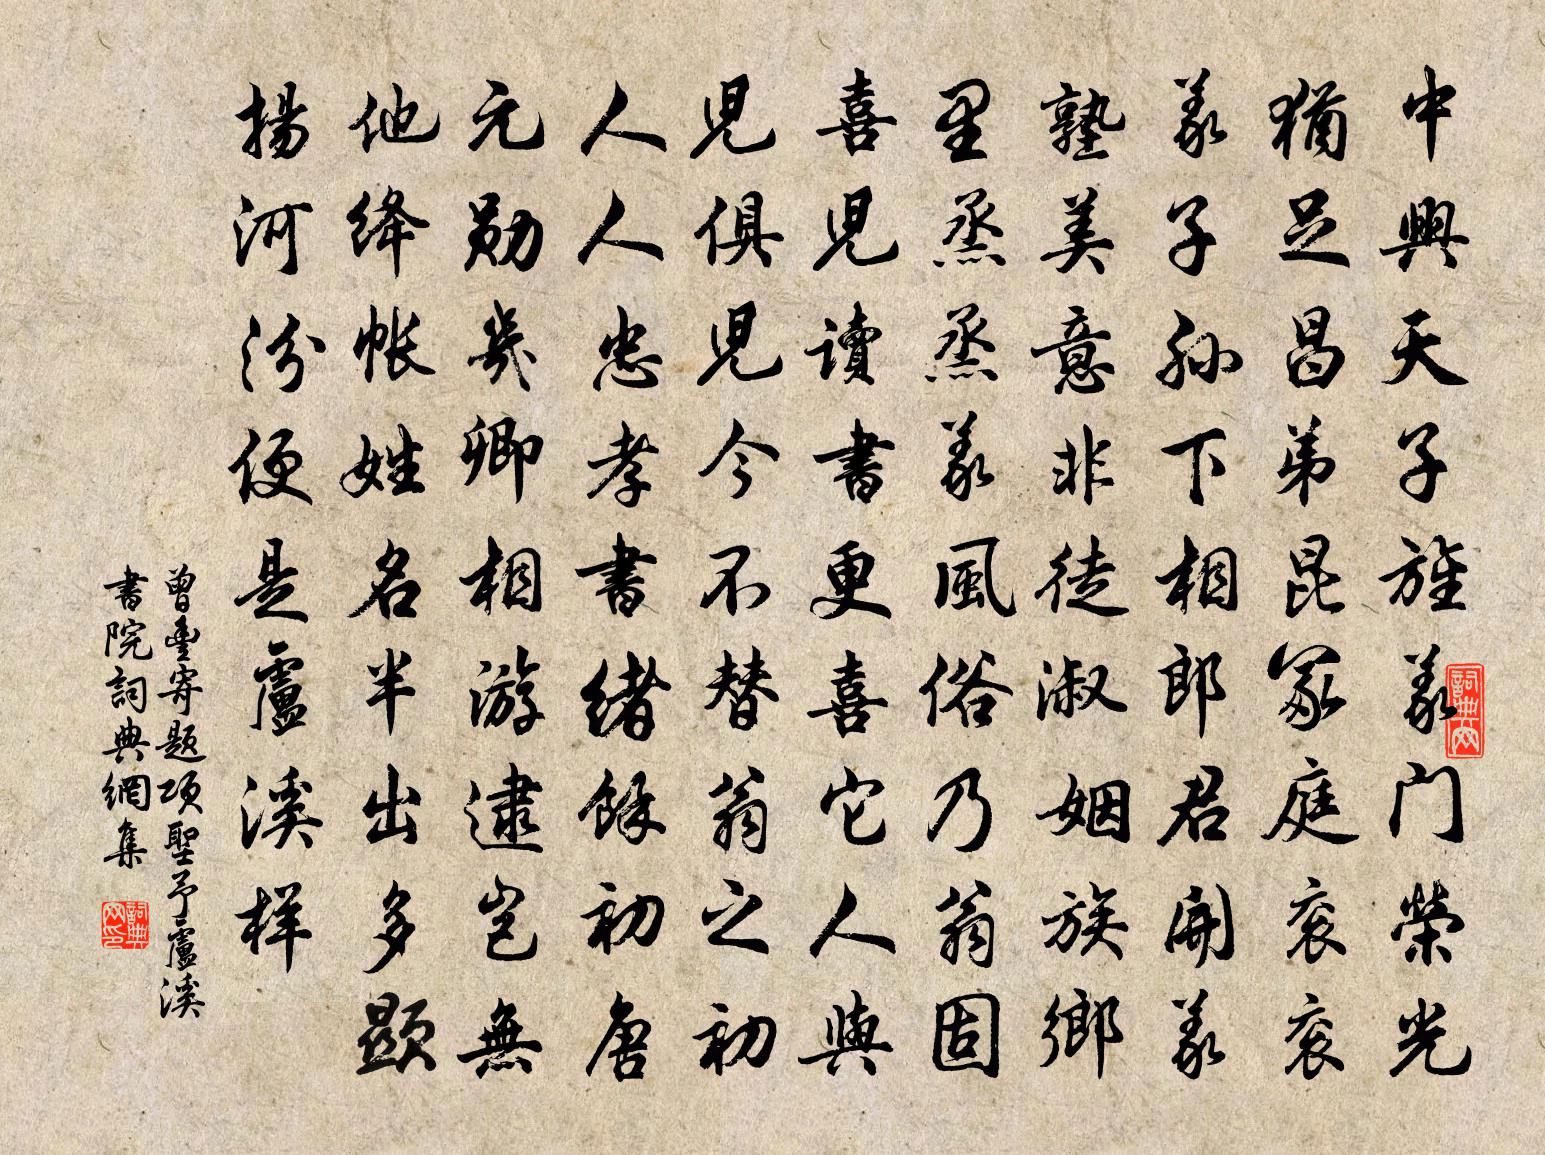 中興天子旌義門榮光
猶足昌弟昆冢庭衮衮
義子孫下相郎君開義
塾美意非徒淑姻族鄉
里烝烝義風俗乃翁固
喜児讀書更喜它人與
児俱児今不替翁之初
人人忠孝書緒餘初唐
元勛幾卿相游逮豈無
他绛帐姓名半出多顯
揚河汾便是盧溪样
曾豊寄題項聖予盧溪
書院詞典網集
詞典网
詞典网印